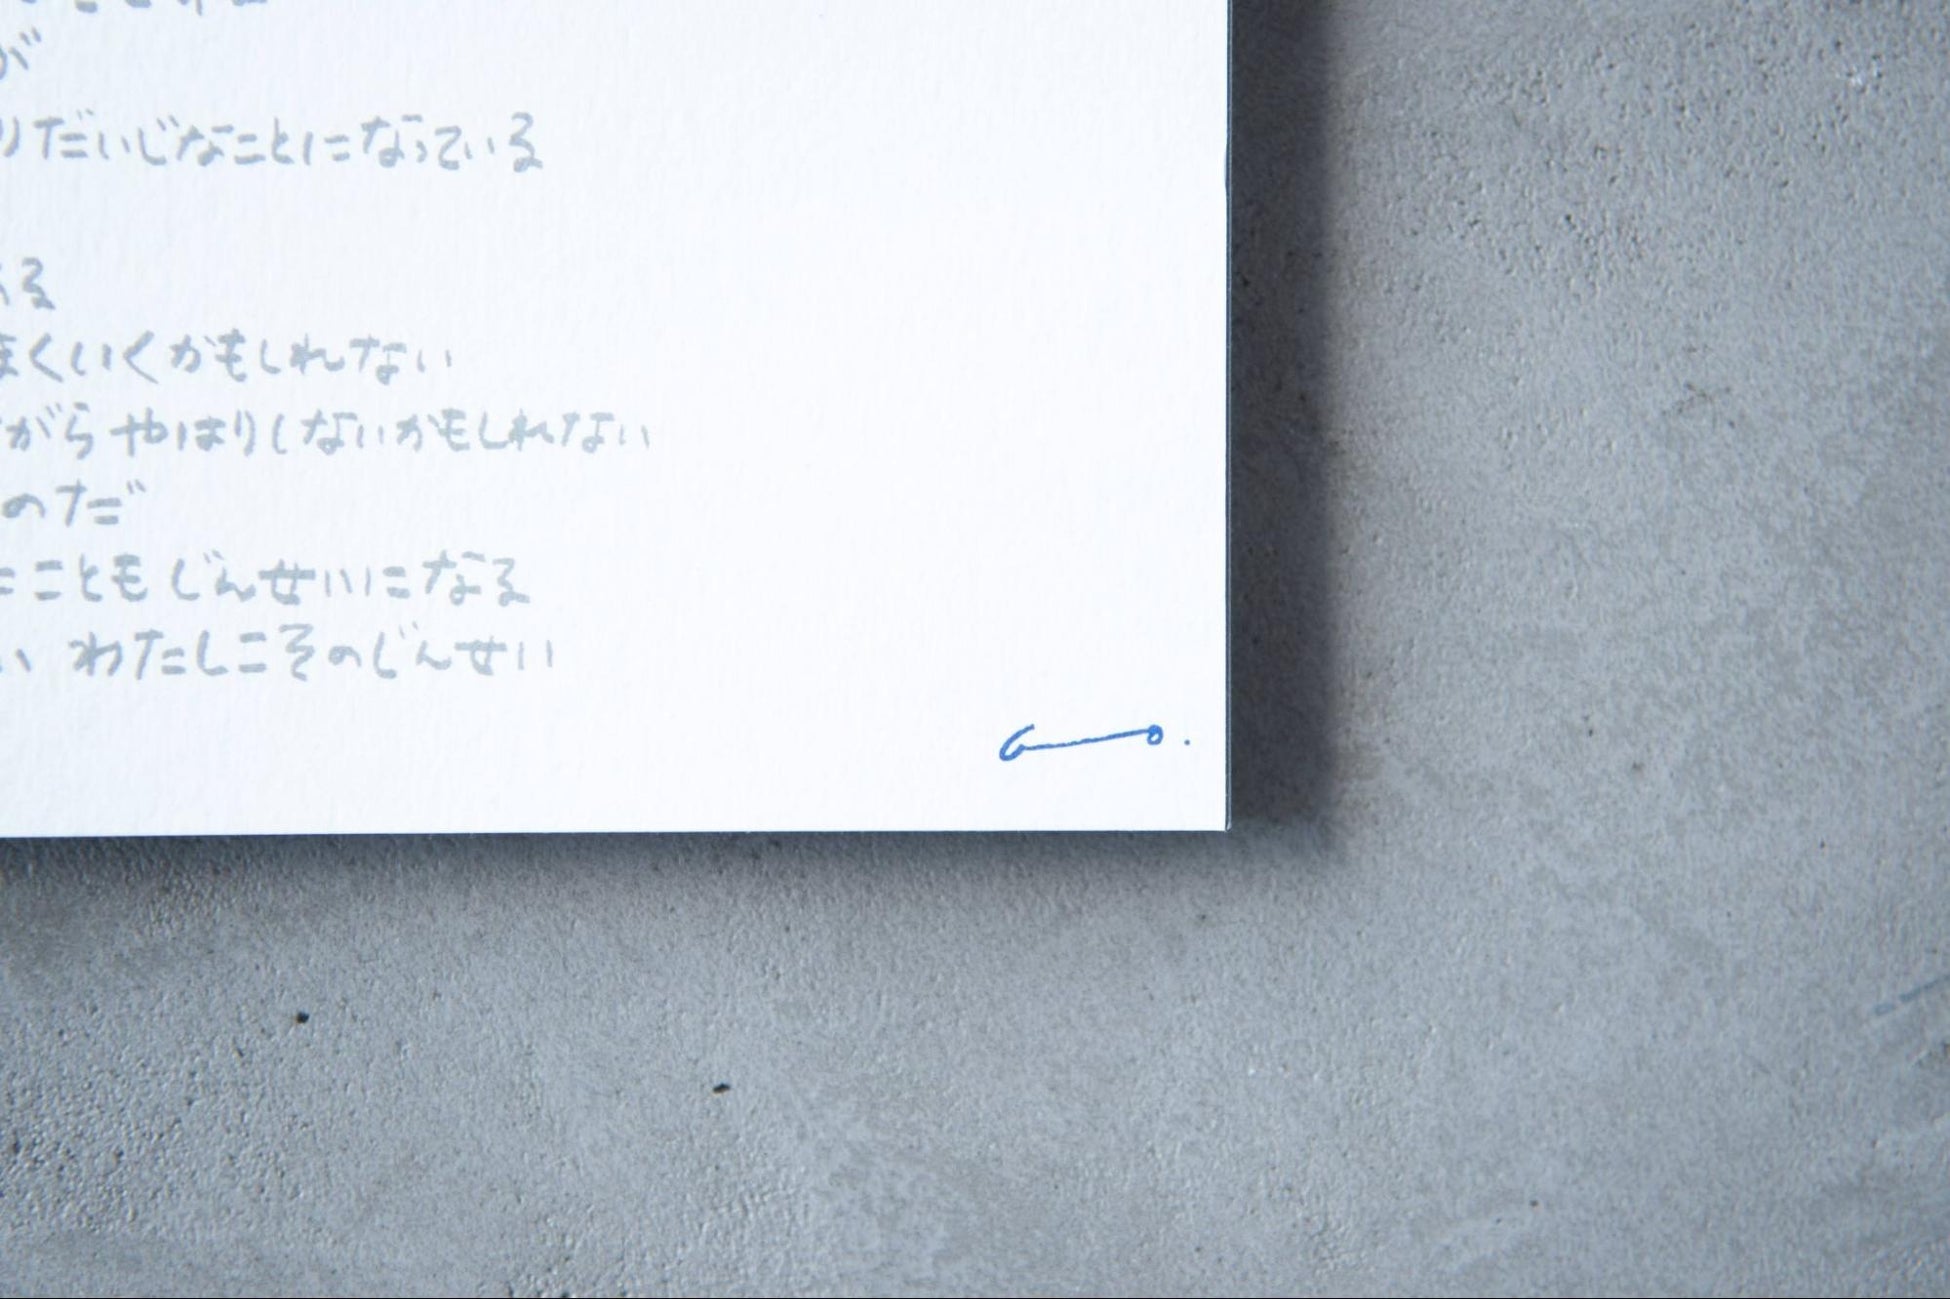 が
りだいじなことになっている
ある
まくいくかもしれない
ながら やはりしないかもしれない
のだ
たこともじんせいになる
い わたしこそのじんせい